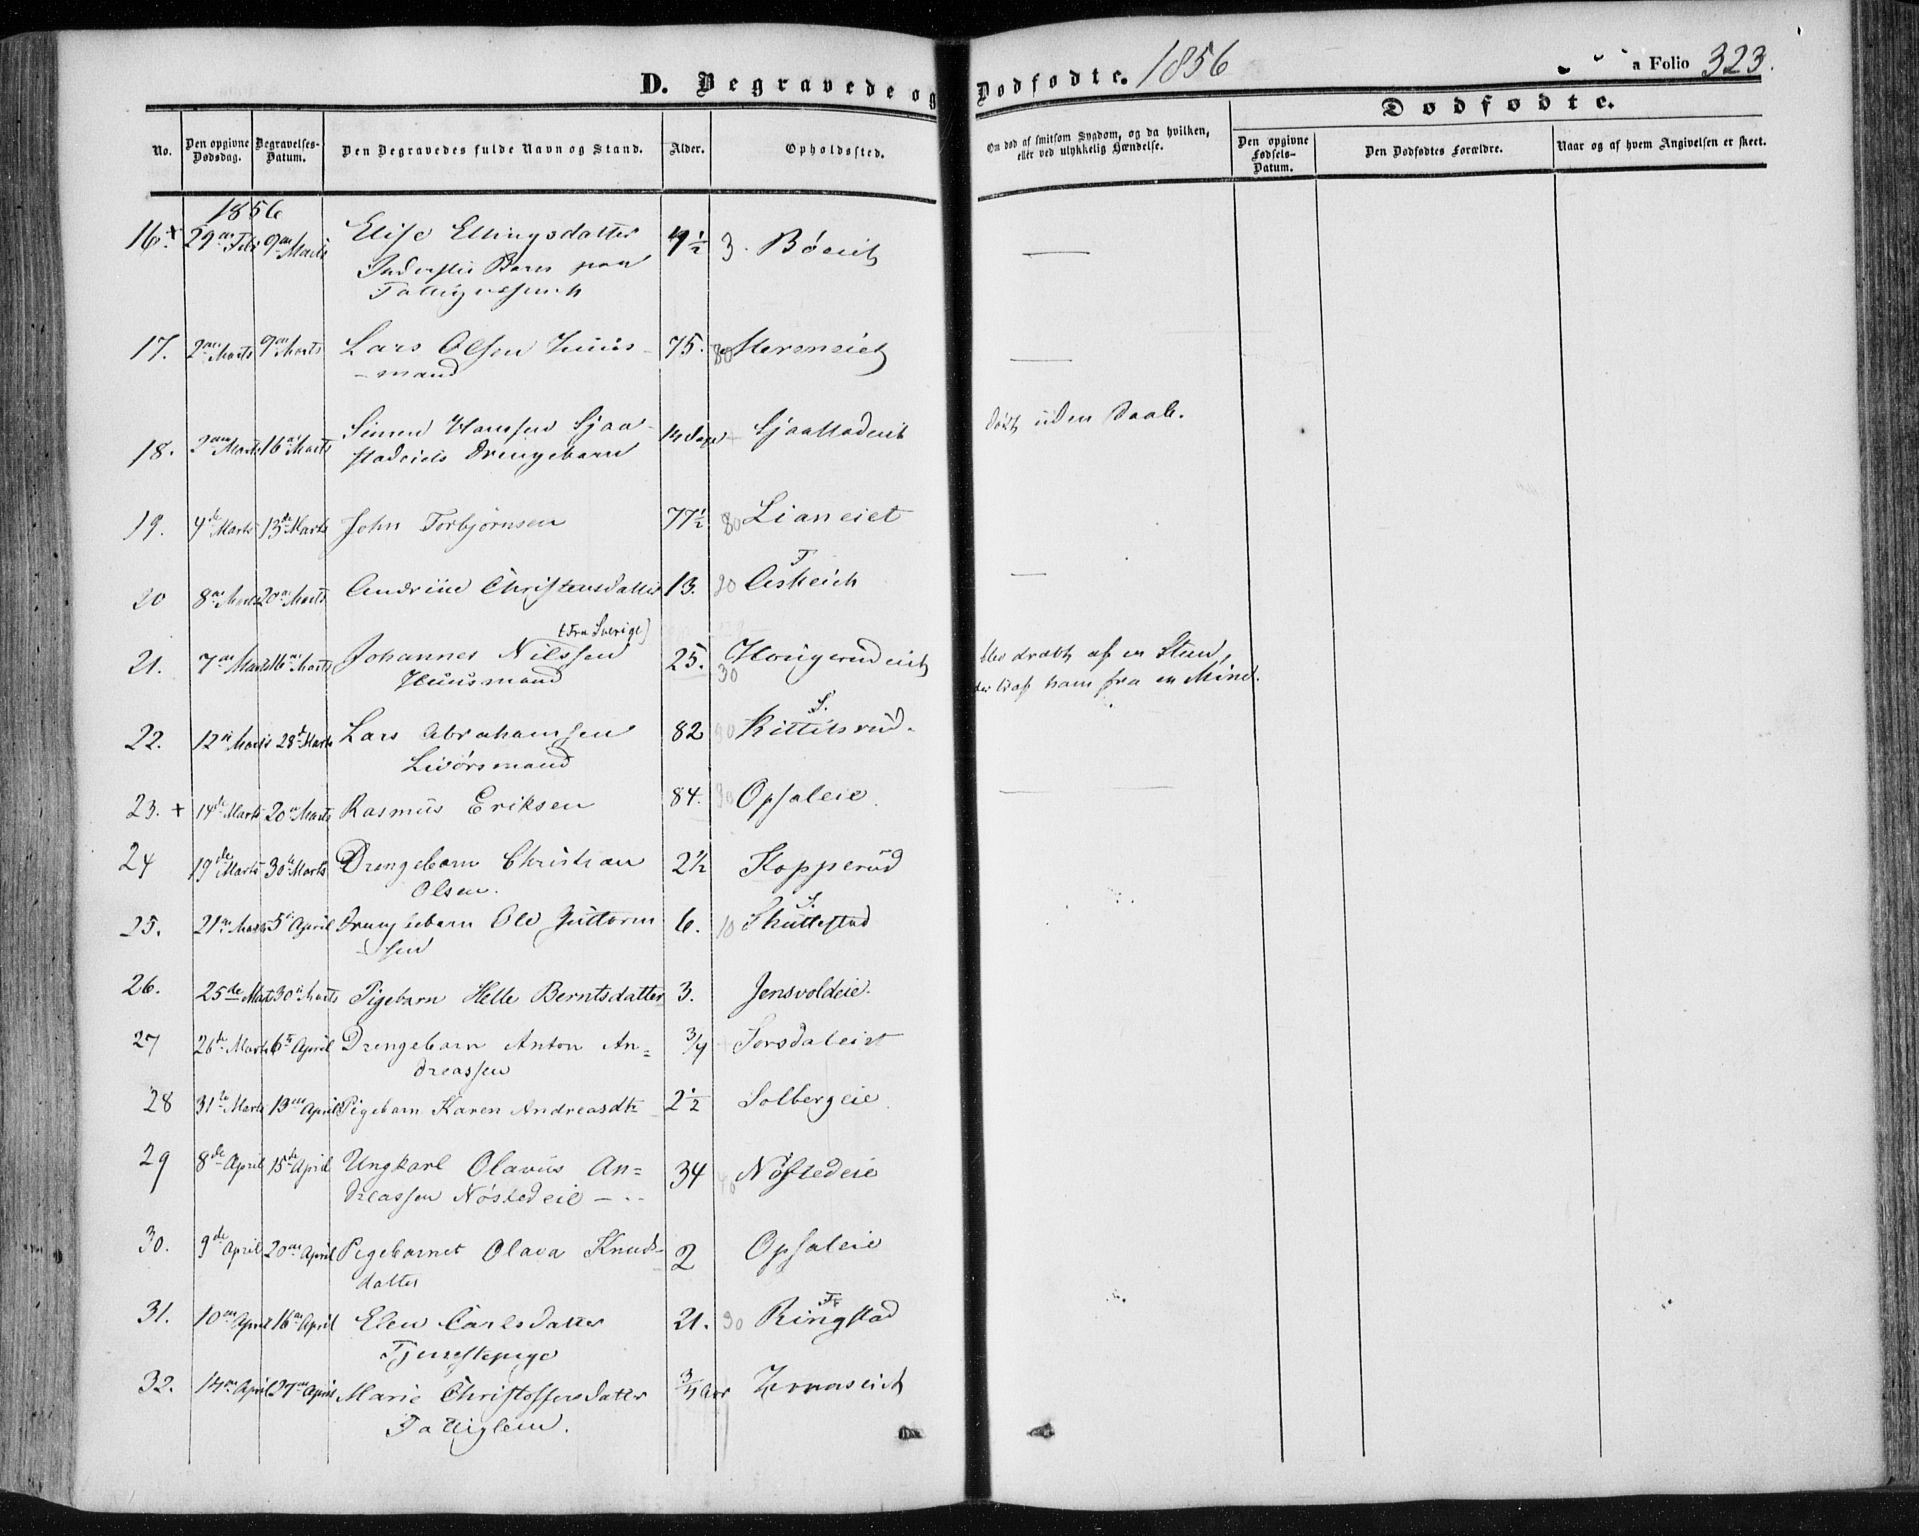 D. Begravede og Dødfødte. 1856
a Folio 323.
Dødfødte.
No. Den opgivne Dødsdag. Begravelses-Datum. Den Begravedes fulde Navn og Stand. Alder. Opholdssted. Om død af smitsom Sygdom, og da hvilken, eller ved ulykkelig Hændelse. Den opgivne Fødsels-Datum. Den Dødfødtes Forældre. Naar og af hvem Angivelsen er skeet.
1856
16 + 29 Feb 9 Marts Elise Ellingsdatter 4½ 3. Bøeiet —
Barn paa
17. 2 Marts 9 Marts Lars Olsen Huus- 75. 80 —
mand
18. 2 Marts 16 Marts Simen Hansen Sjaa- 14 Dage + Sjaastadeiet død uden Daab.
stadeiets Drengebarn
19. 4de Marts 13de Marts John Torbjørnsen 77½ 80 Lianeiet
F
20 8 Marts 20 Marts Andrine Christensdatter 13. 20 Askeiet —
[Fra Sverige]
21. 7 Marts 16 Marts Johannes Nilssen 25. 30 Hougerudeiet blev dræbt af en Steen,
Huusmand der traf ham fra en Mine.
S.
22. 12 Marts 28 Marts Lars Abrahamsen 82 90 Kittilsrud.
Livørsmand
23. + 14de Marts 20 Marts Rasmus Eriksen 84. 90 Opsaleie —
24 19de Marts 30 Marts Drengebarn Christian 2½ Kopperud
Olsen.
S.
25. 21 Marts 5 April Drengebarn Ole Guttorm 6. 10 Skuttestad
sen
26. 25de Marts 30 Marts Pigebarn Helle Berntsdatter 3. Jensvoldeie.
27 26de Marts 6te April Drengebarn Anton An= Sorsdaleiet
dreassen
28 31te Marts 13 April Pigebarn Karen Andreasdtr 2½ Solbergeie
29 8de April 15de April Ungkarl Olavus An= 34 40 Nøstedeie
dreassen Nøstedeie —
30. 9de April 20 April Pigebarnet Olava Knuds- 2 Opsaleie
datter
Fr
31. 10 April 16 April Elen Carlsdatter 21. 30 Ringstad
Tjenestepige
32. 14 April 27 April Marie Christoffersdatter ¾ Aar
Fattiglem.